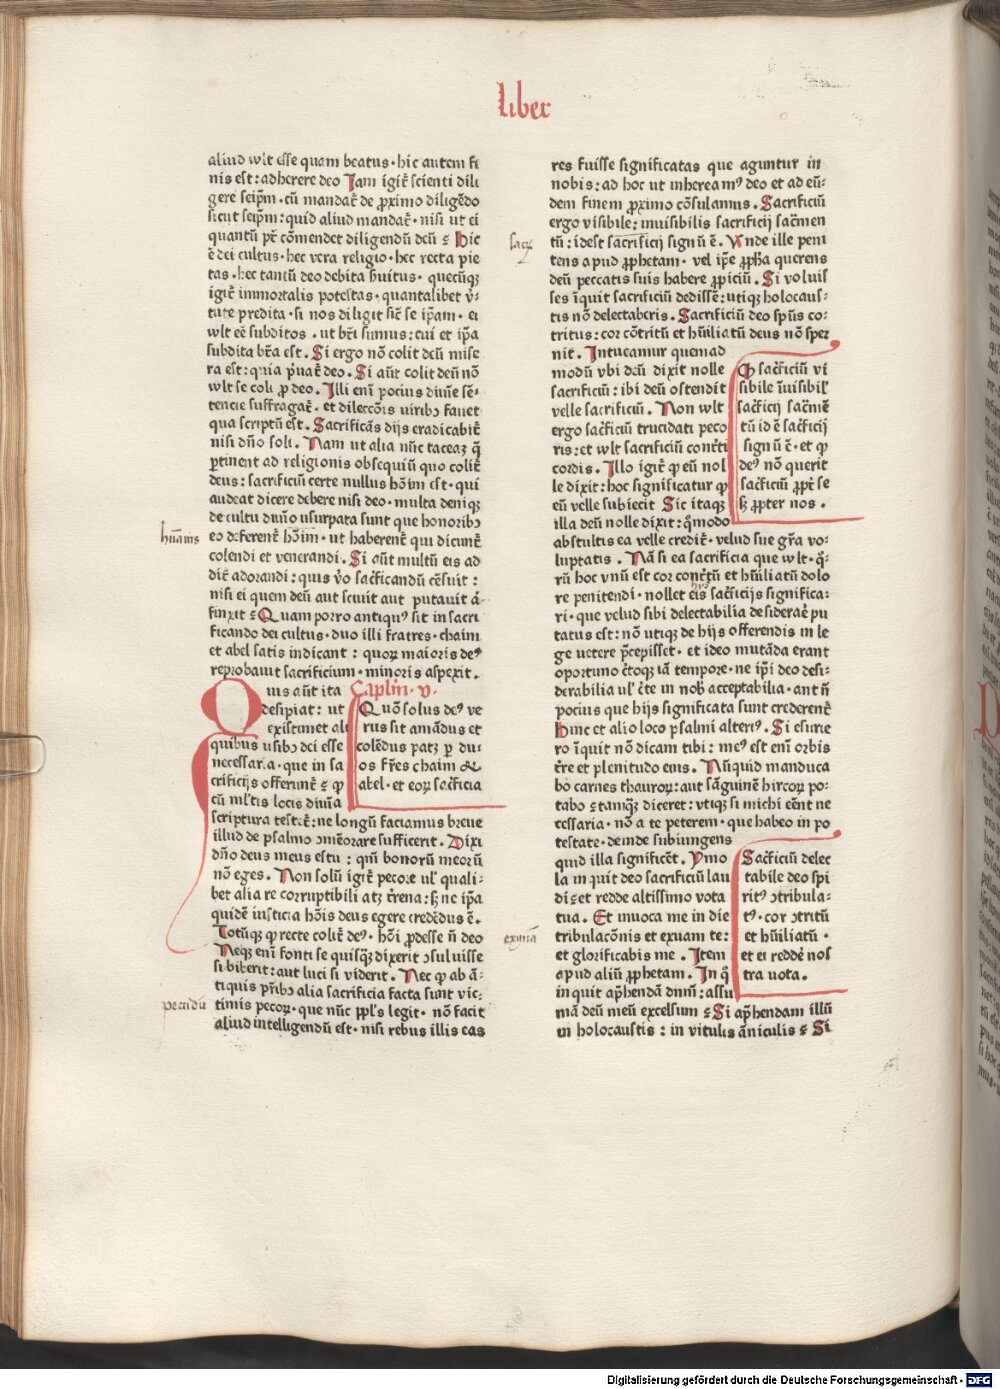 liber
aliud wlt esse quam beatus· hic autem fi
nis est: adherere deo Jam igit̃ scienti dili
gere seip̄m· cū mandat̃ de ꝓximo diligēdo
sicut seip̄m: quid aliud mandat̃· nisi ut ei
quantū pt̃ cōmendet diligendū deū ⁊ Hic
ē dei cultus· hec vera religio· hec recta pie
tas· hec tantū deo debita ẜuitus· quecūqꝫ
igit̃ immortalis potestas· quantalibet v̓
tute predita· si nos diligit sic̃ se ip̄am· ei
wlt eē subditos· ut bt̃i simus: cui et ip̄a
subdita bt̃a est. Si ergo nō colit deū mise
ra est: quia p̓uat̃ deo. Si aūt colit deū nō
wlt se coli ꝓ deo. Illi eni pocius diuīe sē-
tencie suffragat̃· et dileccōis uiribꝫ fauet
qua scriptū est. Sacrificās dijs eradicabit̃
nisi dn̄o soli. Nam ut alia nūc taceā q̄
ꝑtinent ad religionis obsequiū quo colit̃
deus: sacrificiū certe nullus hōim est· qui
audeat dicere debere nisi deo· multa deniqꝫ
de cultu diuīo usurpata sunt que honoribꝫ
hūanis
eo deferent̃ hōim· ut haberent̃ qui dicunt̃
colendi et venerandi. Si aūt multū eis ad
dit̃ adorandi: quis v̓o sac̃ficandū cēsuit:
nisi ei quem deū aut sciuit aut putauit a̓
finxit ⁊ Quam porro antiquꝰ sit in sacri
ficando dei cultus· duo illi fratres· chaim
et abel satis indicant: quoꝝ maioris deꝰ
reprobauit sacrificium· minoris aspexit.
Quis aūt ita Caplm̄· v·
desipiat: ut
existimet ali
quibus usibꝫ dei esse
necessaria· que in sa
crificijs offerunt̃ ⁊ ꝙ
cū ml̓tis locis diuīa
Quō solus deꝰ ve
rus sit amādus et
colēdus patꝫ ꝑ du-
os fr̄es chaim &
abel· et eoꝝ sac̃ficia
scriptura testat̃: ne longū faciamus breue
illud de psalmo ↄmēorare sufficerit. Dixi
dn̄o deus meus es tu: qm̄ bonorū meorū
nō eges. Non solū igit̃ pecore ul̓ quali-
bet alia re corruptibili atꝫ t̓rena: sꝫ ne ip̄a
quidē iusticia hōis deus egere credēdus ē.
Totūqꝫ ꝙ recte colit̃ deꝰ· hōi ꝓdesse n̄ deo
Neqꝫ enī fonti se quisꝙ̄ dixerit ↄsuluisse
si biberit: aut luci si viderit. Nec ꝙ ab ā-
tiquis pr̄ibꝫ alia sacrificia facta sunt vic-
pecudū
timis pecoꝝ· que nūc ppl̓s legit· nō facit
aliud intelligendū est· nisi rebus illis eas
res fuisse significatas que aguntur in
nobis: ad hoc ut inhereamꝰ deo et ad eū-
dem finem ꝓximo cōsulamus. Sacrificiū
ergo visibile: inuisibilis sacrificij sac̃men
tū: idest sacrificij signū ē. Vnde ille peni
tens apud ꝓphetam· vel ip̄e ꝓph̄a querens
deū peccatis suis habere ꝓpiciū. Si voluis
ses īquit sacrificiū dedissē: utiqꝫ holocaus-
tis nō delectaberis. Sacrificiū deo sp̄us co-
tritus: cor cōtritū et hūiliatū deus nō sper
nit. Intueamur quemad
modū vbi deū dixit nolle
sacrificiū: ibi deū ostendit
velle sacrificiū. Non wlt
ergo sac̃ficiū trucidati peco
ris: et wlt sacrificiū cont̓ti
cordis. Illo igit̃ ꝙ eū nol
le dixit: hoc significatur ꝙ
eū velle subiecit Sic itaqꝫ
illa deū nolle dixit: q̄modo
Qͦ sac̃ficiū vi
sibile īuisibil̓
sac̃ficij sac̃mē
tū id ē sac̃ficij
signū ē· et ꝙ
deꝰ nō querit
sac̃ficiū ꝓpt̃ se
sꝫ ꝓpter nos.
abstultis ea velle credit̃· velud sue gr̄a vo-
luptatis. Nā si ea sacrificia que wlt· q̄-
rū hoc vnū est cor cont̓tū et hūiliatū dolo
re penitendi· nollet eis sac̃ficijs significa-
ri· que velud sibi delectabilia desideraē pu
tatus est: nō utiqꝫ de hijs offerendis in le
ge uetere p̄cepisset· et ideo mutāda erant
oportuno c̓toqꝫ iā tempore· ne ip̄i deo desi-
derabilia ul̓ c̓te in nob̓ acceptabilia· ant n̄
pocius que hijs significata sunt credērent̃
Hinc et alio loco psalmi alteriꝰ. Si esurie
ro īquit nō dicam tibi: meꝰ est enī orbis
t̓re et plenitudo eius. Nūquid manduca
bo carnes thauroꝝ: aut sāguinē hircoꝝ po-
tabo ⁊ tamqꝫ diceret: vtiqꝫ si michi eēnt ne
cessaria· nō a te peterem· que habeo in po
testate· deinde subiungens
quid illa significēt. Ymo
la inquit deo sacrificiū lau
dis ⁊ et redde altissimo vota
tua. Et inuoca me in die
exīmā
tribulacōnis et exuam te:
et glorificabis me. Item
apud aliū ꝓphetam. In q̄
inquit app̄hendā dnm̄: assu
Sac̃ficiū delec
tabile deo spi
ritꝰ ↄtribula-
tꝰ· cor ↄtritū
et hūiliatū·
et ei reddē nos
tra uota.
mā deū meū excelsum ⁊ Si app̄hendam illū
in holocaustis: in vitulis āniculis ⁊ Si
Digitalisierung gefördert durch die Deutsche Forschungsgemeinschaft · DFG